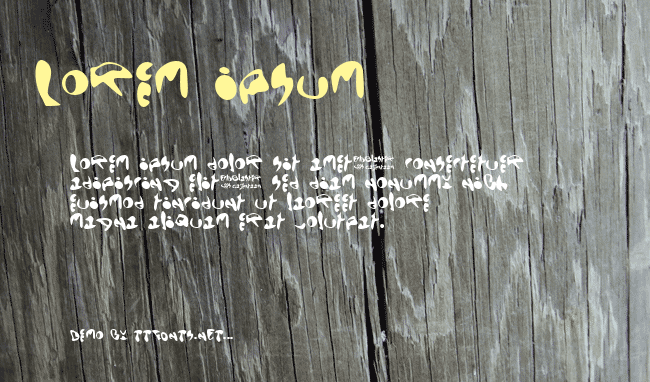 Lorem ipsum
Lorem ipsum dolor sit amet consectetuer
adipiscing elit sed diam nonummy nibh
euismod tincidunt ut laoreet dolore
magna aliquam erat volutpat.
Demo by TTFonts.net...